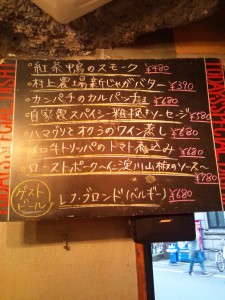 紅茶鴨のスモーク ¥480
村上農場新じゃがバター ¥390
カンパチのカルパッチョ ¥680
自家製スパイシー粗挽きソーセージ ¥580
ハマグリとオクラのワイン蒸し ¥680
トリッパのトマト煮込み ¥680
ローストポーク〜淀川山椒のソース〜
¥780
ゲスト
ビール
レフ・ブロンド(ベルギー) ¥680